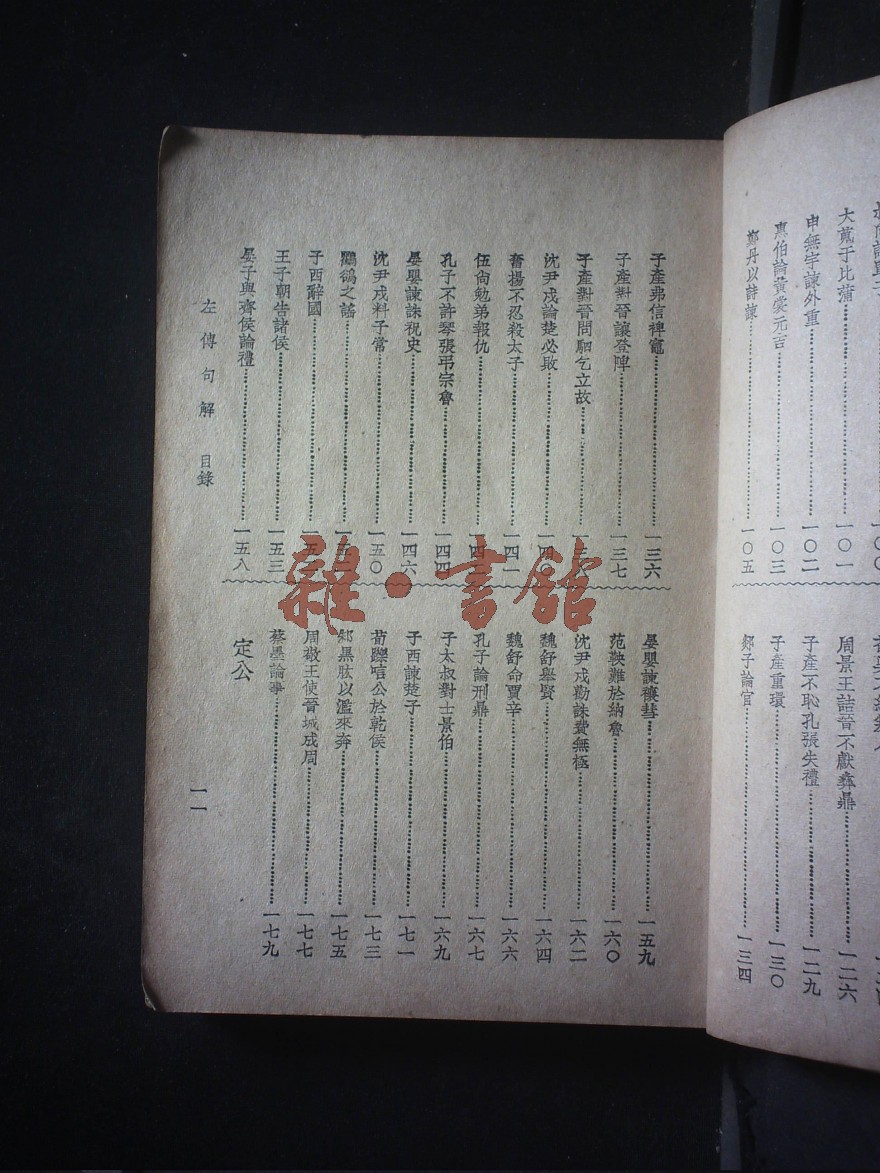 大蒐于比蒲……一〇一
申無宇諫外重……一〇二
惠伯論黃裳元吉……一〇三
鄭丹以詩諫……一〇五
周景王詰晉不獻彝鼎……一二六
子產不恥孔張失禮……一二九
子產重環……一三〇
郯子論官……一三四
子產弗信裨竈……一三六
子產對晉讓登陴……一三七
子產對晉問駟乞立故……
沈尹戌論楚必敗……一四〇
奮揚不忍殺太子……一四一
伍尙勉弟報仇……
孔子不許琴張弔宗魯……一四四
晏嬰諫誅祝史……一四六
沈尹戌料子常……一五〇
鸜鵒之謠……
子西辭國……
王子朝告諸侯……一五三
晏子與齊侯論禮……一五八
晏嬰諫禳彗……一五九
范鞅難於納魯……一六〇
沈尹戌勸誅費無極……一六二
魏舒舉賢……一六四
魏舒命賈辛……一六六
孔子論刑鼎……一六七
子太叔對士景伯……一六九
子西諫楚子……一七一
荀躒唁公於乾侯……一七三
邾黑肱以濫來奔……一七五
周敬王使晉城成周……一七七
蔡墨論事……一七九
定公
左傳句解 目錄
一一
雜·書館